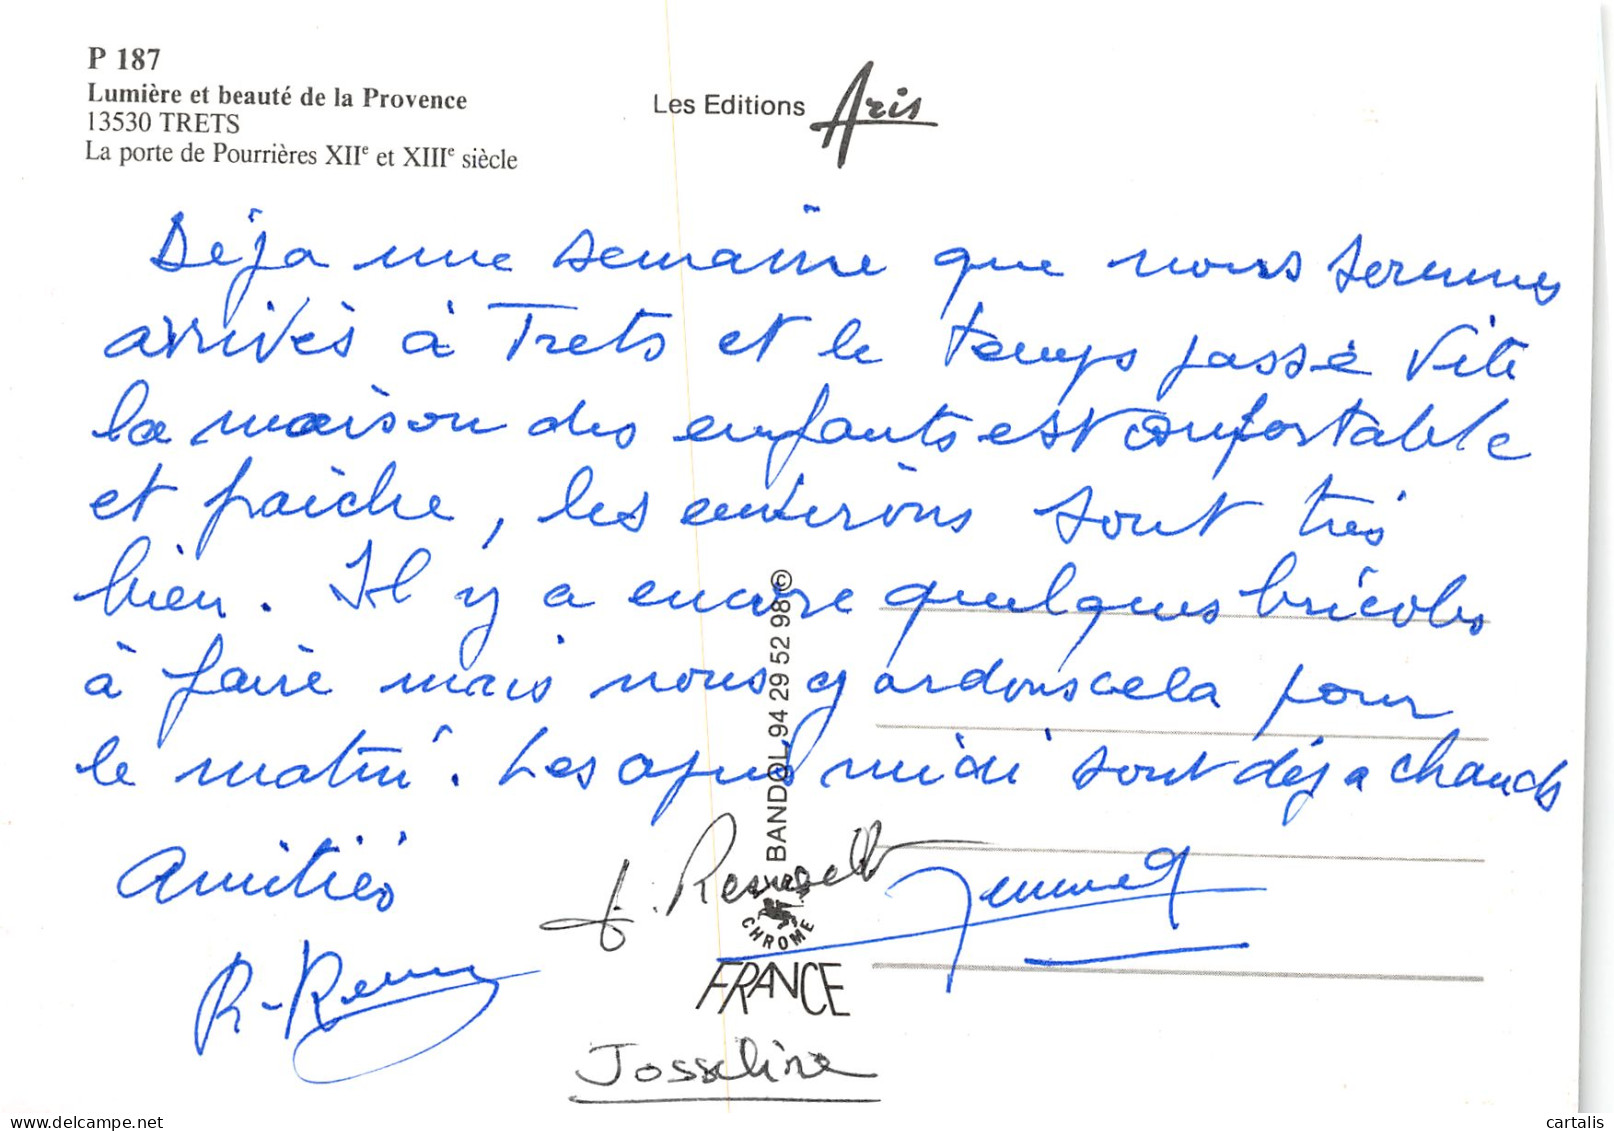 P 187
Lumière et beauté de la Provence
13530 TRETS
La porte de Pourrières XIIe et XIIIe siècle
Les Editions Aris
Déja une semaine que nous sommes
arrivés à Trets et le temps passe vite
la maison des enfants est confortable
et fraiche, les environs sont très
bien. Il y a encore quelques bricoles
à faire mais nous gardons cela pour
le matin. Les après midi sont déja chauds
Amitiés
R-
Josseline
BANDOL 94 29 52 98 ©
CHROME
FRANCE
cartalis